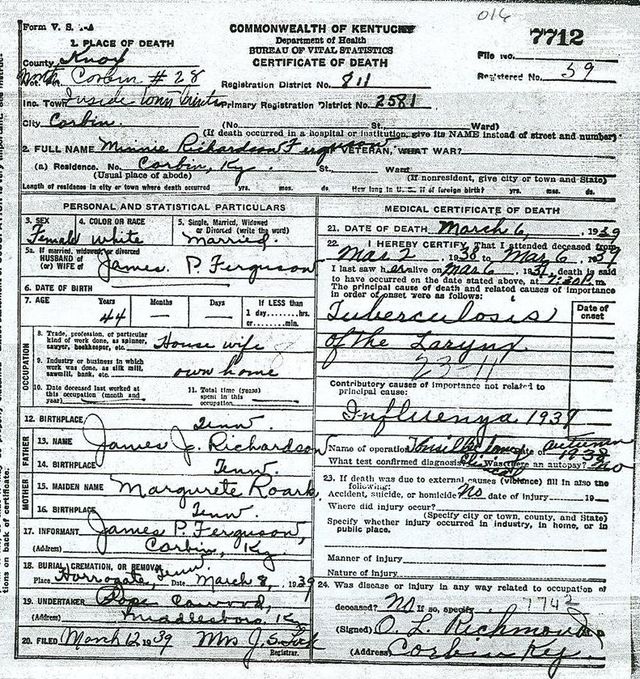 016
Form V. S. 1-A
COMMONWEALTH OF KENTUCKY
Department of Health
BUREAU OF VITAL STATISTICS
CERTIFICATE OF DEATH
7712
File No.
Registered No. 59
1. PLACE OF DEATH
County Knox
Corbin # 28
Registration District No. 811
Inc. Town Inside town limits Primary Registration District No. 2581
City Corbin (No. St. Ward)
(If death occurred in a hospital or institution, give its NAME instead of street and number)
2. FULL NAME Minnie Richardson Ferguson VETERAN, WHAT WAR?
(a) Residence. No. Corbin, Ky. St. Ward
(Usual place of abode) (If nonresident, give city or town and State)
Length of residence in city or town where death occurred yrs. mos. ds. How long in U. S. if of foreign birth? yrs. mos. ds.
PERSONAL AND STATISTICAL PARTICULARS
3. SEX 4. COLOR OR RACE 5. Single, Married, Widowed or Divorced (write the word)
Female white Married
5a. If married, widowed or divorced
HUSBAND of
(or) WIFE of James P. Ferguson
6. DATE OF BIRTH
7. AGE Years Months Days If LESS than
1 day......hrs.
or......min.
44
OCCUPATION
8. Trade, profession, or particular kind of work done, as spinner, sawyer, bookkeeper, etc. House wife
9. Industry or business in which work was done, as silk mill, sawmill, bank, etc. own home
10. Date deceased last worked at this occupation (month and year)
11. Total time (years) spent in this occupation
12. BIRTHPLACE Tenn.
FATHER
13. NAME James J. Richardson
14. BIRTHPLACE Tenn.
MOTHER
15. MAIDEN NAME Margurete Roark
16. BIRTHPLACE Tenn.
17. INFORMANT James P. Ferguson,
(Address) Corbin, Ky.
18. BURIAL, CREMATION, OR REMOVAL
Place Harrogate, Tenn. Date March 8, 1939
19. UNDERTAKER Cawood,
Middlesboro, Ky.
20. FILED March 12 1939 Mrs J.
Registrar.
MEDICAL CERTIFICATE OF DEATH
21. DATE OF DEATH March 6, 1939
22. I HEREBY CERTIFY, That I attended deceased from
Mar 2 1938 to Mar 6, 1939
I last saw her alive on Mar 6 193 death is said
to have occurred on the date stated above, at m.
The principal cause of death and related causes of importance
in order of onset were as follows:
Date of onset
Tuberculosis
of the Larynx
23-11
Contributory causes of importance not related to
principal cause:
Influenza 1939
Name of operation date of autumn 1938
What test confirmed diagnosis? Was there an autopsy? No
23. If death was due to external causes (violence) fill in also the
following:
Accident, suicide, or homicide No date of injury 19
Where did injury occur?
(Specify city or town, county, and State)
Specify whether injury occurred in industry, in home, or in
public place.
Manner of injury
Nature of injury
24. Was disease or injury in any way related to occupation of
deceased? No If so, specify 7742
(Signed) O. L. Richmond
(Address) Corbin Ky.
tions on back of certificate.